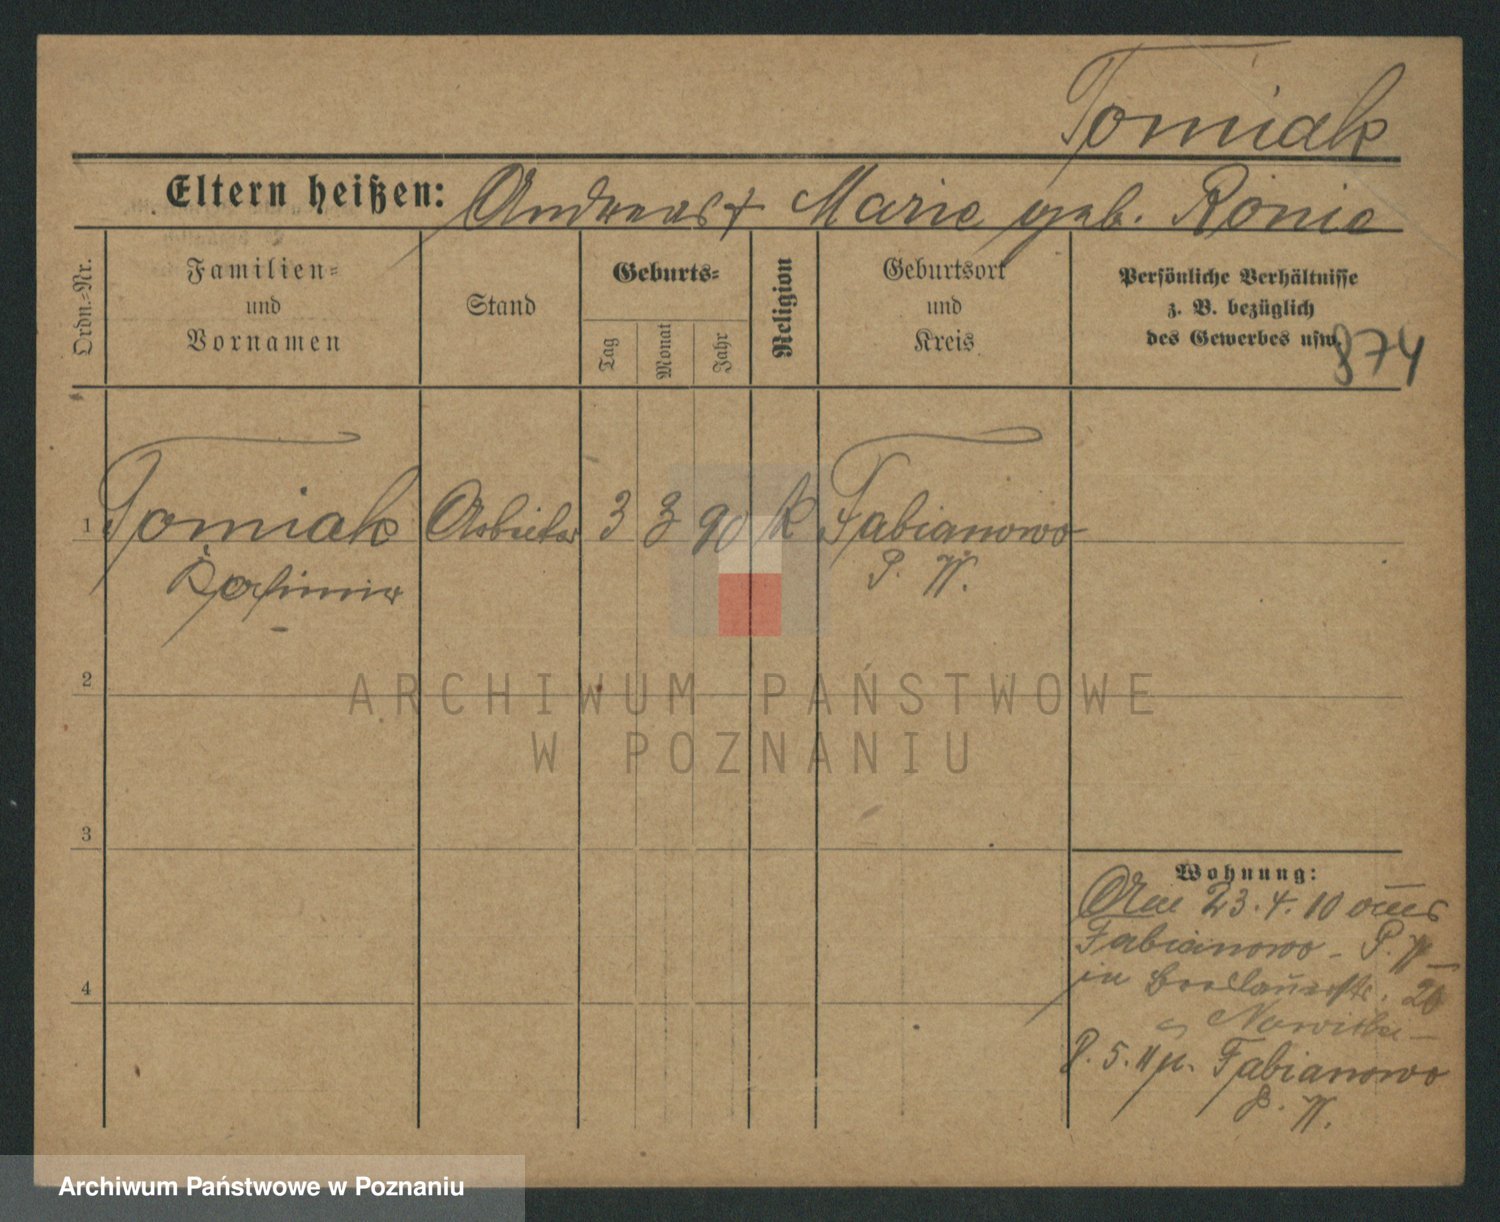 Tomiak
Eltern heißen: Andreas † Marie geb. Rönic
Ordn.-Nr.
Familien-
und
Vornamen
Stand
Geburts-
Tag
Monat
Jahr
Religion
Geburtsort
und
Kreis
Persönliche Verhältnisse
z. B. bezüglich
des Gewerbes usw.
874
1 Tomiak Arbeiter 3 3 90 K Fabianowo
Kasimir P. W.
2
ARCHIWUM PAŃSTWOWE
W POZNANIU
3
Wohnung:
23.4.10 aus
Fabianowo - P. W
in 26
8.5.11 Fabianowo
P. W.
4
Archiwum Państwowe w Poznaniu